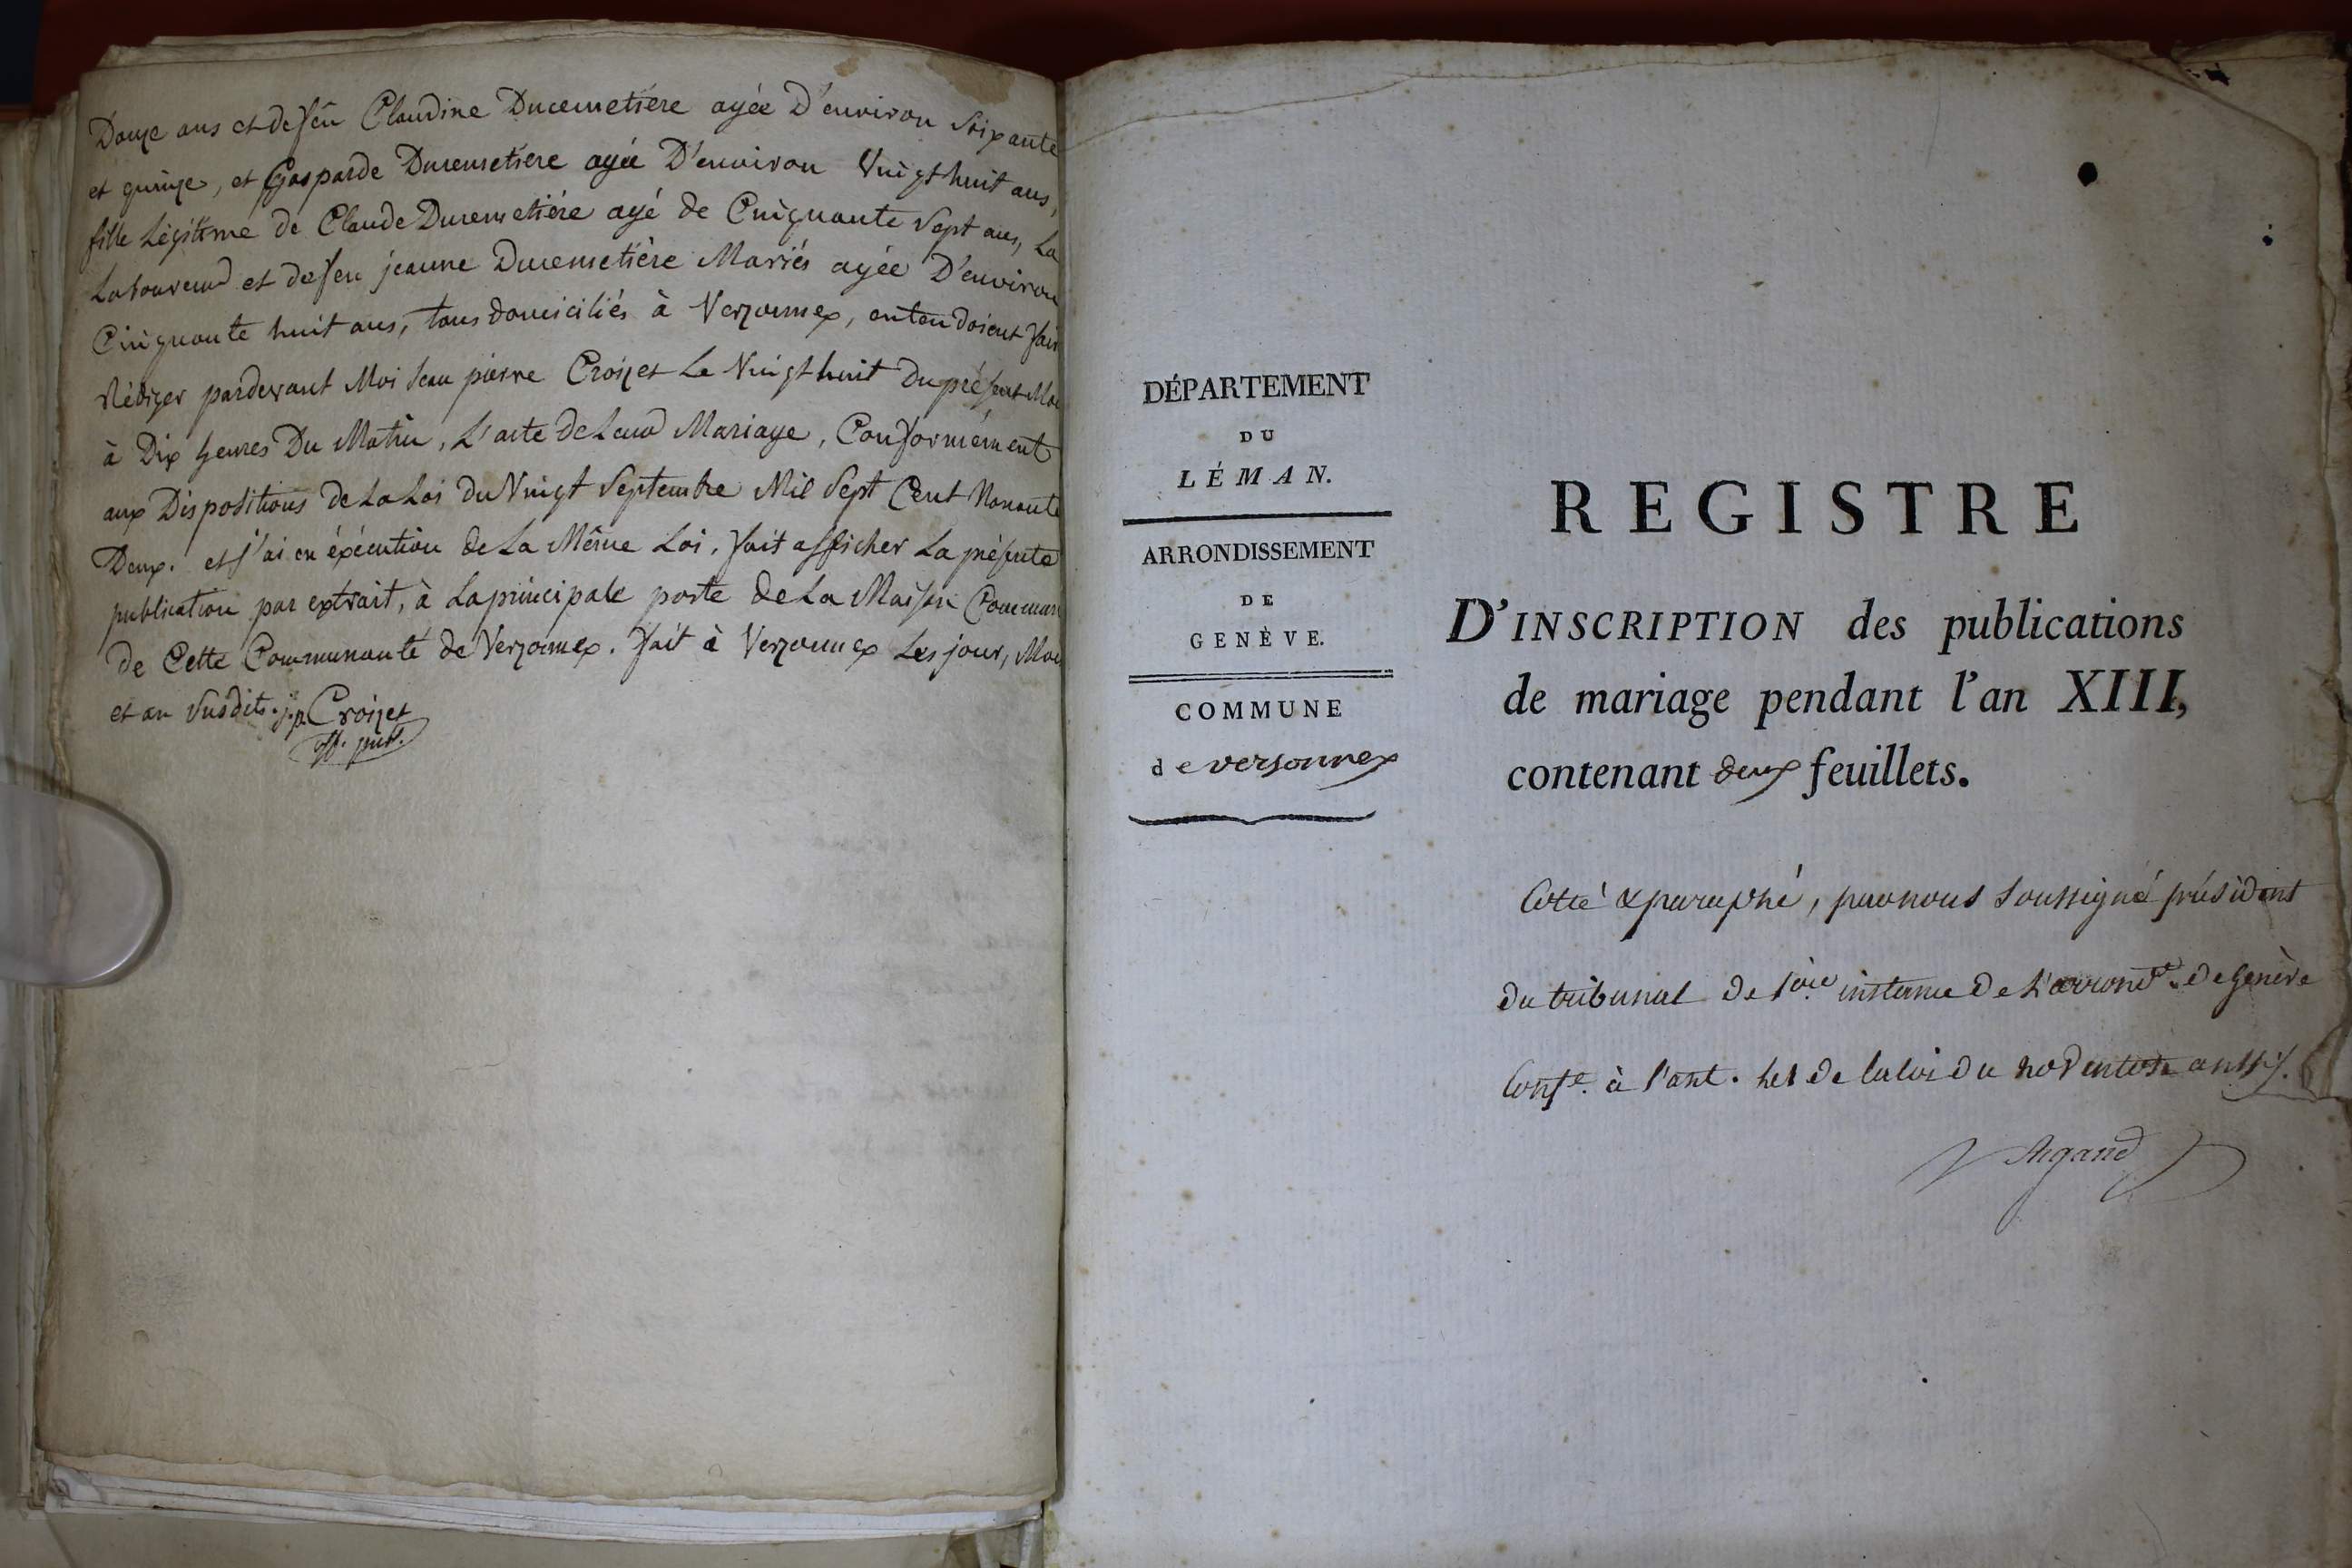 Douze ans et de feû Claudine Ducemetière agée D'environ Soixante
et quinze, et Gasparde Ducemetiere agée D'environ Vingt huit ans,
fille Légitime de Claude Ducemetière agé de Cinquante Sept ans, La
Laboureur et de feu jeanne Ducemetière Mariés agée D'environ
Cinquante huit ans, tous domiciliés à Verzonnex, entendoient fair
Rédiger pardevant Moi Jean pierre Croizet Le Vingt huit Du présent Moi
à Dix heures Du Matin, L'acte de Leur Mariage, Conformément
aux Dispositions de La Loi Du Vingt Septembre Mil Sept Cent Nonante
Deux. et j'ai en éxécution de La Même Loi, fait afficher La présente
publication par extrait, à La principale porte de La Maison Commun
de Cette Communauté de Verzonnex. fait à Verzonnex Les jour, Moi
et an Susdits. j. p. Croizet
off. pub.
DÉPARTEMENT
DU
LÉMAN.
ARRONDISSEMENT
DE
GENÈVE.
COMMUNE
de versonnex
REGISTRE
D'INSCRIPTION des publications
de mariage pendant l'an XIII,
contenant deux feuillets.
Cotté & paraphé, par nous Soussigné président
du tribunal de 1ère instance de L'arrond.t de Genève
Conf.t à l'art. de la loi du ventose an
Argand